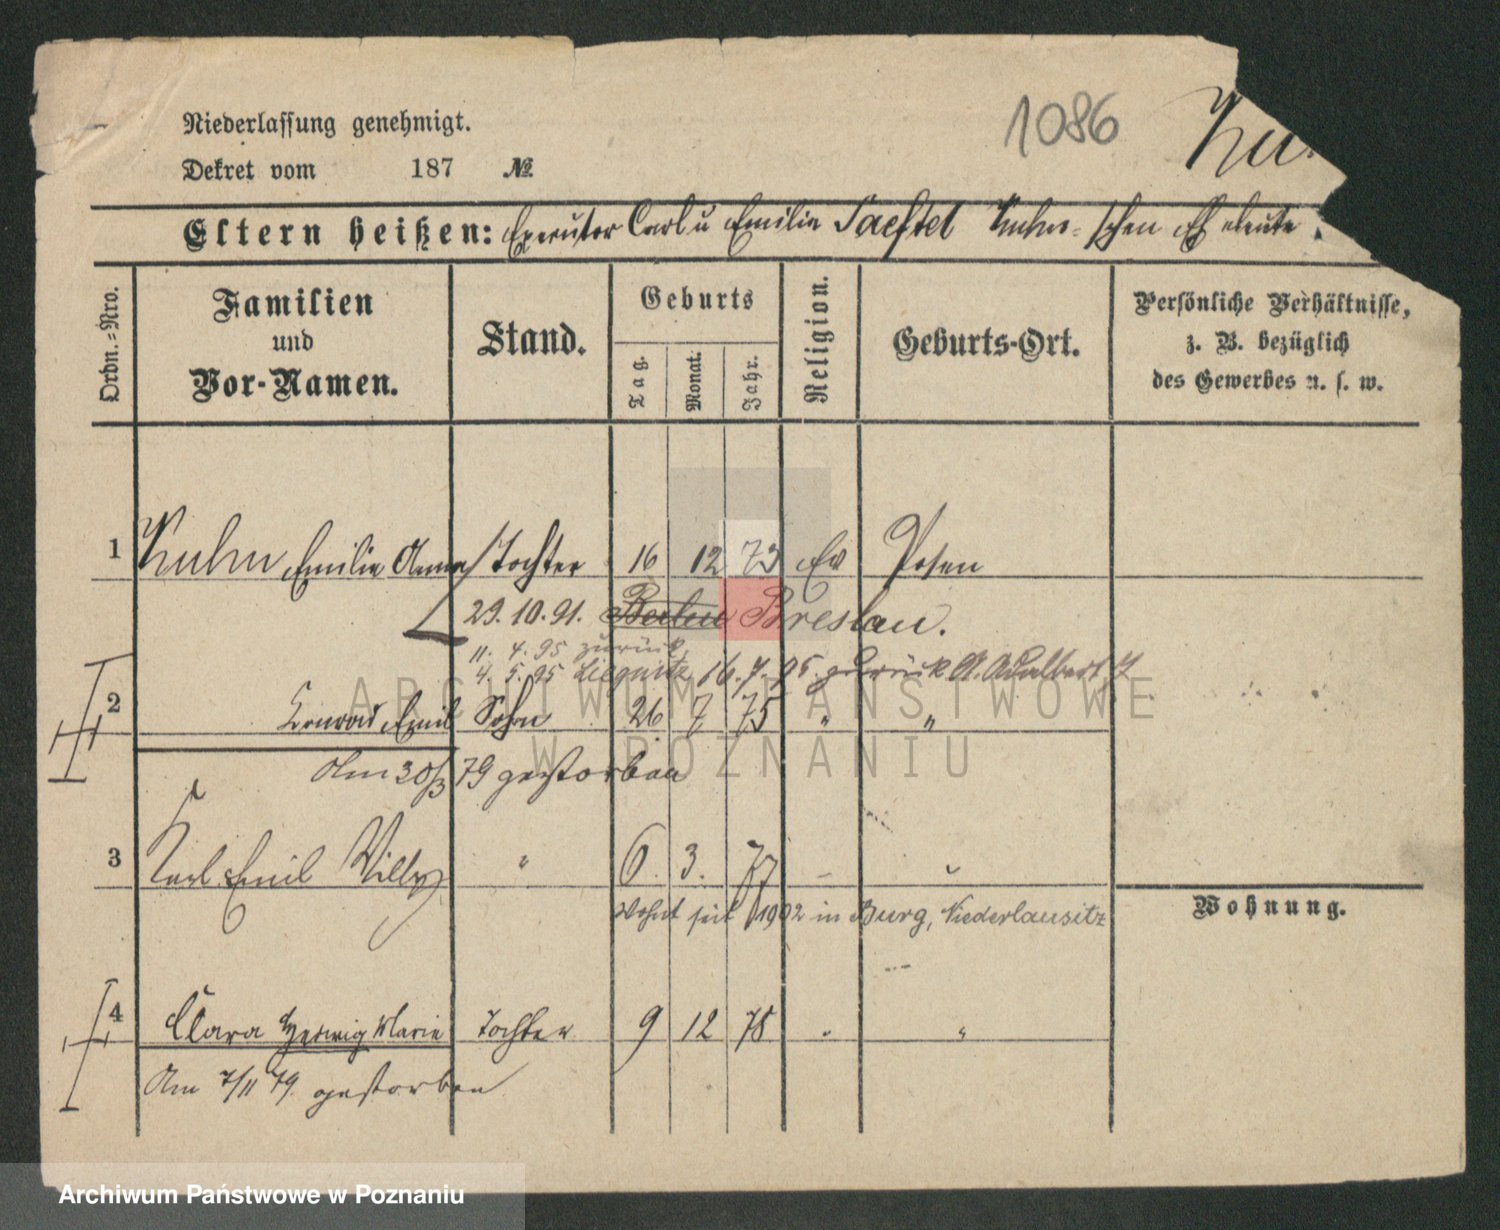 1086
Niederlassung genehmigt.
Dekret vom 187 №
Kuh
Eltern heißen: Executor Carl u Emilie Taeftel Kuhn-schen Eheleute.
Ordn.=Nro.
Familien
und
Vor-Namen.
Stand.
Geburts
Tag.
Monat.
Jahr.
Religion.
Geburts-Ort.
Persönliche Verhältnisse,
z. B. bezüglich
des Gewerbes u. s. w.
1 Kuhn Emilie Anna / Tochter 16 12 73 Ev Posen
29. 10. 91. Berlin Breslau.
11. 4. 95 zurück,
4. 5. 95 Liegnitz, 16. 7. 95 zurück St. Adalbert 7
2 Conrad Emil Sohn 26 7 75 " "
Am 30/3 79 gestorben
3 Karl Emil Willy " 6. 3. 77 — "
wohnt seit 1902 in Burg, Niederlausitz
Wohnung.
4 Clara Hedwig Marie Tochter 9 12 78 " "
Am 7/11 79. gestorben
ARCHIWUM PAŃSTWOWE
W POZNANIU
Archiwum Państwowe w Poznaniu